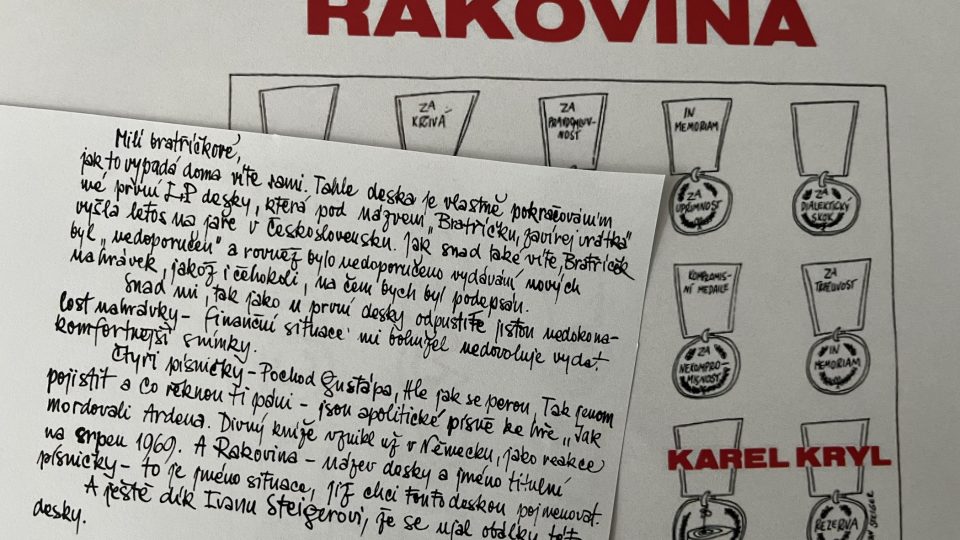 RAKOVINA
ZA
KŘIVÁ
ZA
PRAVDOMLUV-
NOST
IN
MEMORIAM
ZA
UPŘÍMNOST
ZA
DIALEKTICKÝ
SKOK
KOMPROMIS-
NÍ MEDAILE
ZA
NEKOMPRO-
MISNOST
ZA
IN
MEMORIAM
KAREL KRYL
REZERVA
STEIGER
Milí bratříčkové,
jak to vypadá doma víte sami. Tahle deska je vlastně pokračováním
mé první LP desky, která pod názvem „Bratříčku, zavírej vrátka"
vyšla letos na jaře v Československu. Jak snad také víte, Bratříček
byl „nedoporučen" a rovněž bylo nedoporučeno vydávání nových
nahrávek, jakož i čehokoli, na čem bych byl podepsán.
Snad mi, tak jako u první desky odpustíte jistou nedokona-
lost nahrávky – finanční situace mi bohužel nedovoluje vydat
komfortnější snímky.
Čtyři písničky – Pochod Gustápa, Hle jak se perou, Tak jenom
pojistit a Co řeknou ti páni – jsou apolitické písně ke hře „Jak
mordovali Ardena. Divný kníže vznikl už v Německu, jako reakce
na srpen 1969. A Rakovina – název desky a jméno titulní
písničky – to je jméno situace, jíž chci touto deskou pojmenovat.
A ještě dík Ivanu Steigerovi, že se ujal obálky této
desky.